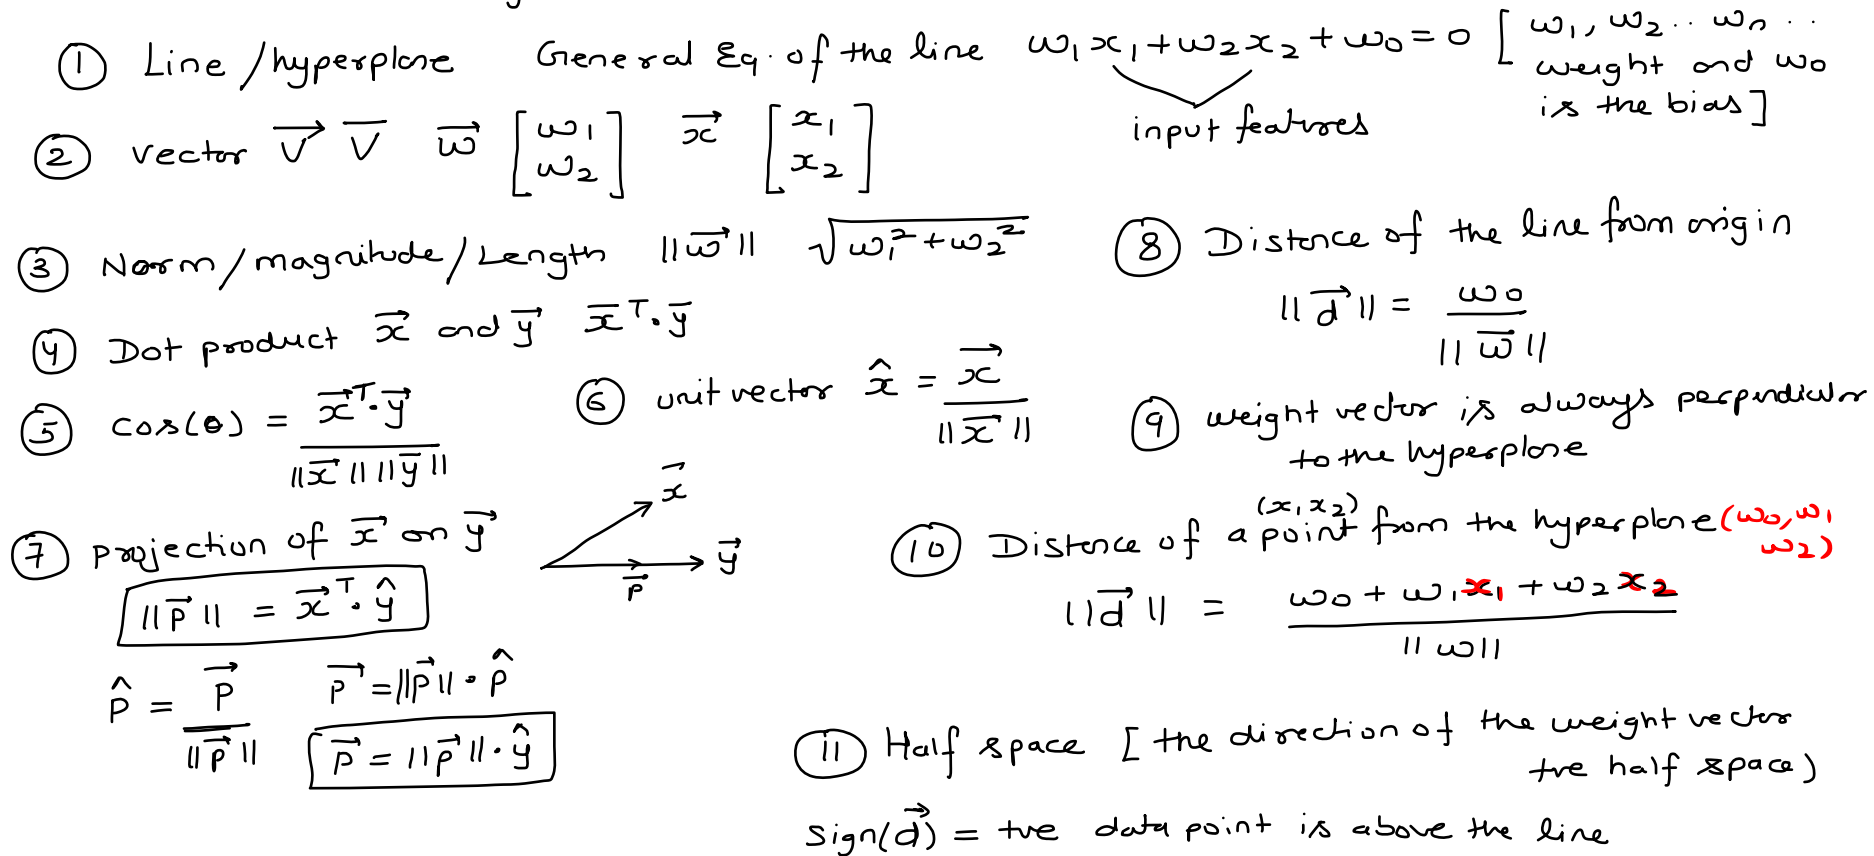 ① Line/hyperplane General Eq. of the line w₁x₁+w₂x₂+w₀=0 [w₁, w₂ .. wₙ ..
weight and w₀
is the bias]
input features
② vector V⃗ V̅ w⃗ [w₁ w₂] x⃗ [x₁ x₂]
③ Norm/magnitude/Length ||w⃗|| √(w₁²+w₂²)
④ Dot product x⃗ and y⃗ x̅ᵀ.y̅
⑤ cos(θ) = x⃗ᵀ.y⃗ / ||x⃗|| ||y̅||
⑥ unit vector x̂ = x⃗ / ||x⃗||
⑦ projection of x⃗ on y⃗
x⃗
y⃗
p̅
||p⃗|| = x⃗ᵀ.ŷ
p̂ = p⃗ / ||p⃗|| p⃗ = ||p⃗||.p̂
p⃗ = ||p⃗||.ŷ
⑧ Distance of the line from origin
||d⃗|| = w₀ / ||w̅||
⑨ weight vector is always perpendicular
to the hyperplane
(x₁ x₂)
⑩ Distance of a point from the hyperplane (w₀, w₁
w₂)
||d⃗|| = w₀ + w₁x₁ + w₂x₂ / ||w||
⑪ Half space [the direction of the weight vector
+ve half space)
Sign(d⃗) = +ve data point is above the line